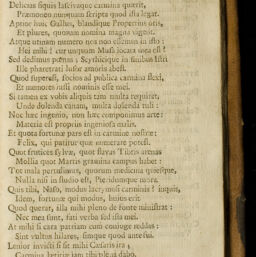 Delicias siquis lascivaque carmina quærit,
Præmoneo nunquam scripta quod ista legat.
Aptior huic Gallus, blandique Propertius oris,
Et plures, quorum nomina magna vigent.
Atque utinam numero non nos essemus in isto:
Hei mihi! cur unquam Musa jocata mea est?
Sed dedimus pœnas; Scythicique in finibus Istri
Ille pharetrati lusor amoris abest.
Quod superest, socios ad publica carmina flexi,
Et memores jussi nominis esse mei.
Si tamen ex vobis aliquis tam multa requiret,
Unde dolenda canam, multa dolenda tuli:
Non hæc ingenio, non hæc componimus arte:
Materia est propriis ingeniosa malis.
Et quota fortunæ pars est in carmine nostræ:
Felix, qui patitur quæ numerare potest.
Quot frutices sylvæ, quot flavas Tibris arenas
Mollia quot Martis gramina campus habet:
Tot mala pertulimus, quorum medicina quiesque,
Nulla nisi in studio est, Pieridumque mora.
Quis tibi, Naso, modus lacrymosi carminis? inquis,
Idem, fortunæ qui modus, hujus erit
Quod querar, illa mihi pleno de fonte ministrat:
Nec mea sunt, fati verba sed ista mei.
At mihi si cara patriam cum conjuge reddas:
Sint vultus hilares, simque quod ante fui.
Lenior invicti si sit mihi Cæsaris ira,
Carmina lætitiæ jam tibi plena dabo.